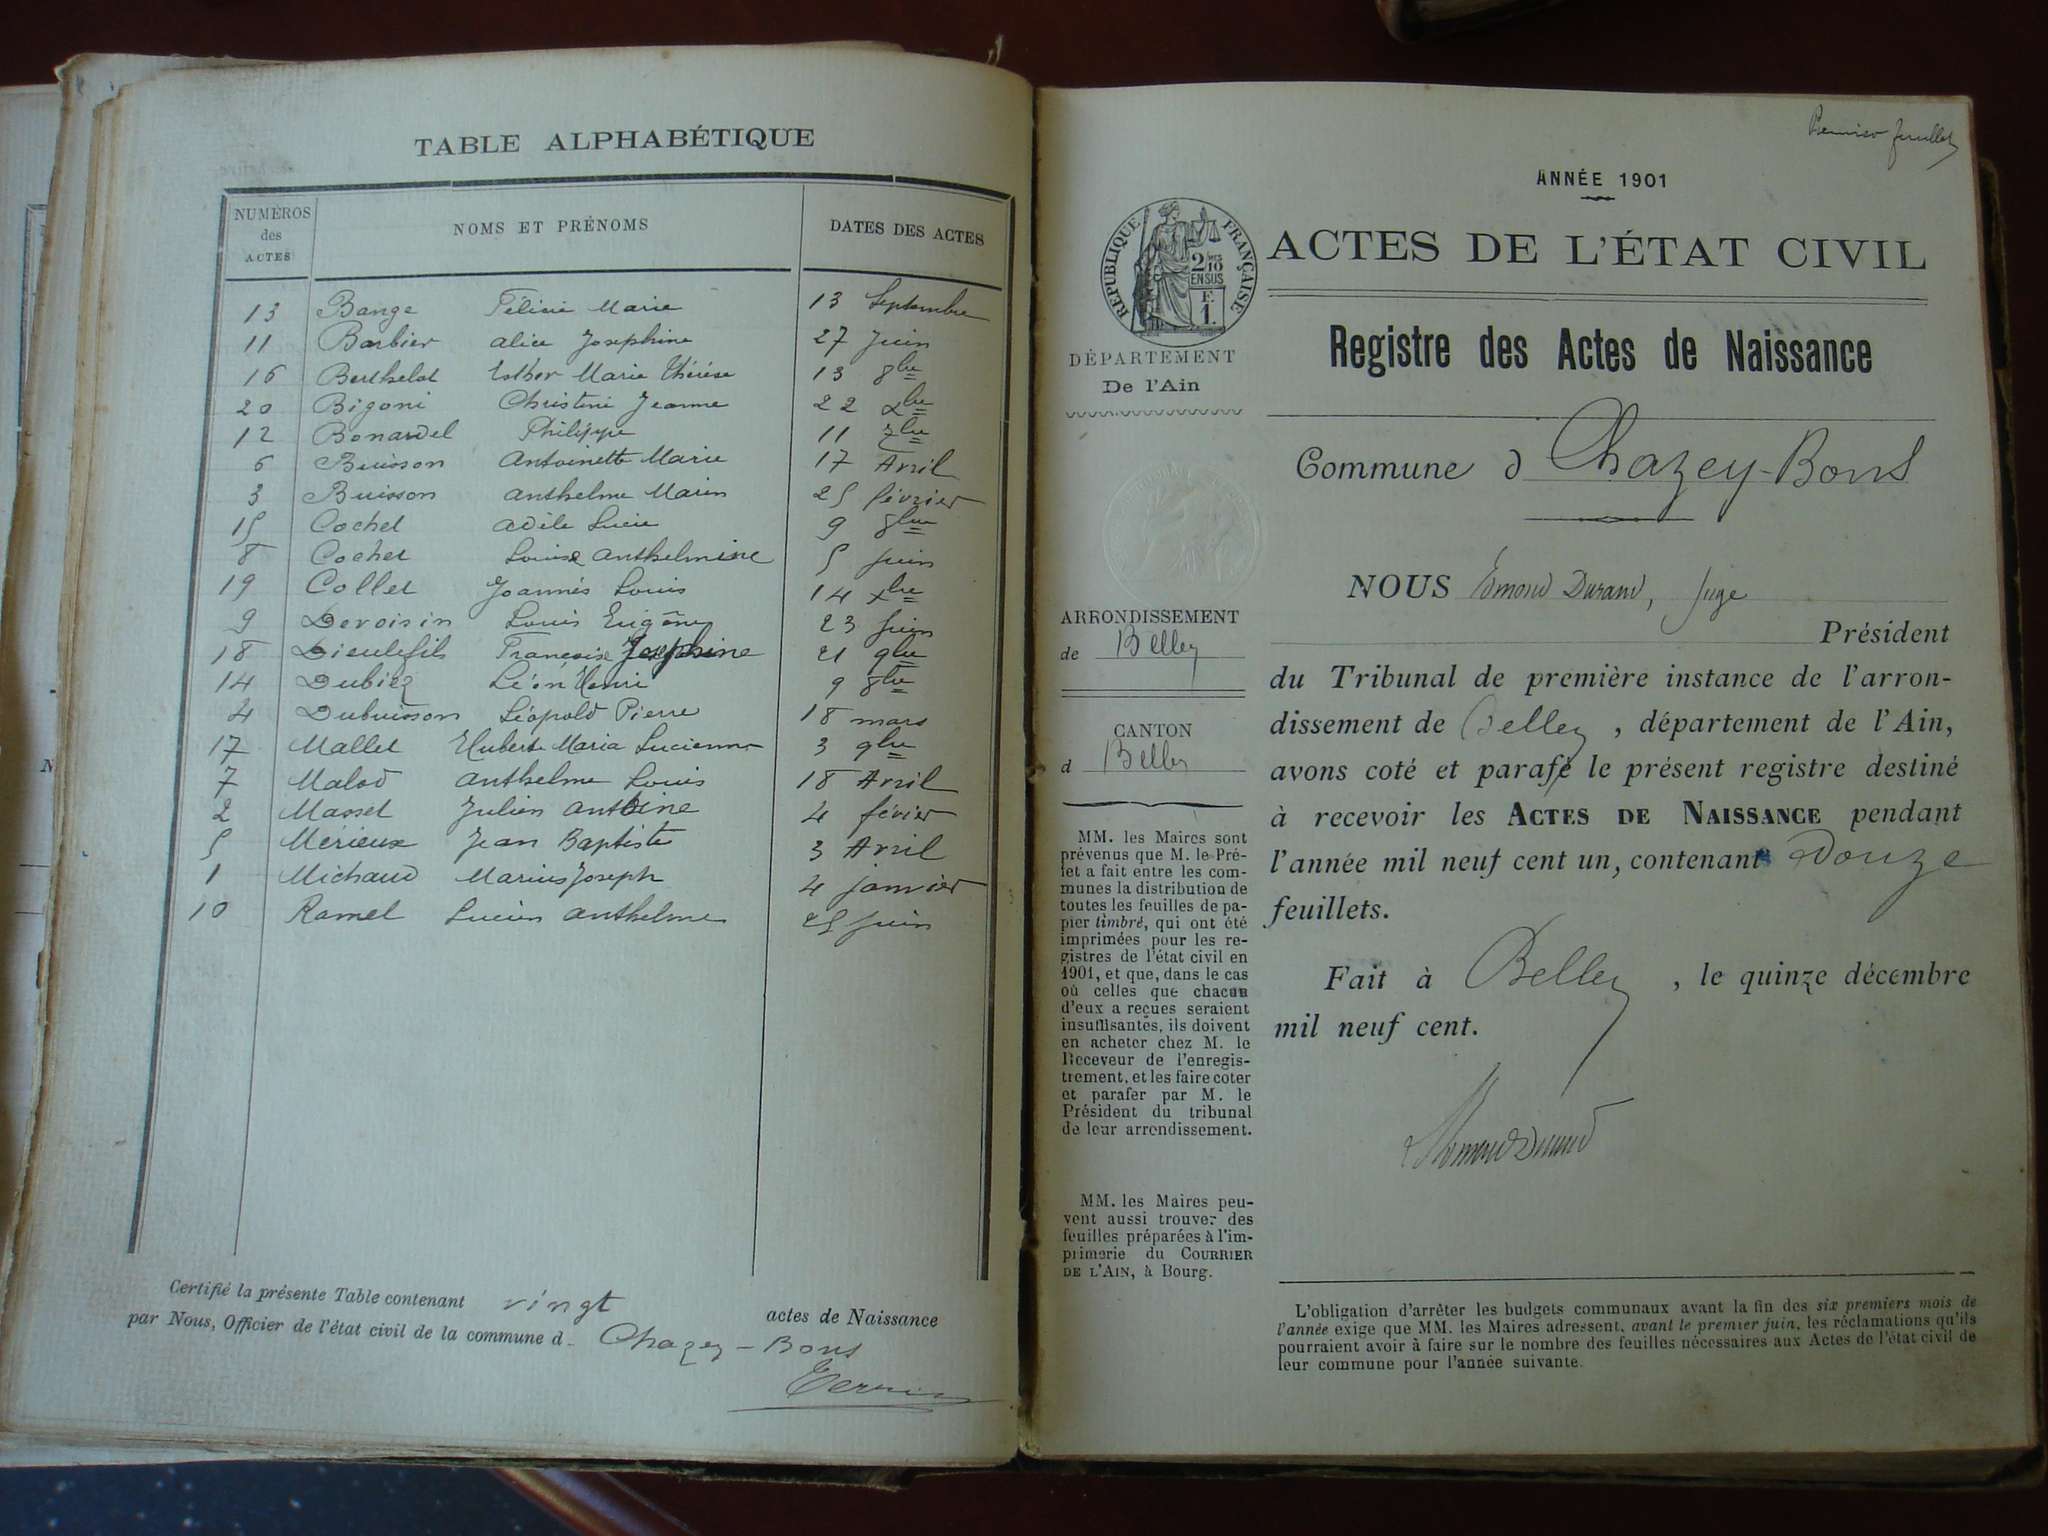 TABLE ALPHABÉTIQUE
NUMÉROS des ACTES NOMS ET PRÉNOMS DATES DES ACTES
13 Bange Félicie Marie 13 Septembre
11 Barbier alice Josephine 27 Juin
16 Berthelot Esther Marie Thérèse 13 8bre
20 Bigoni Christine Jeanne 22 xbre
12 Bonardel Philippe 11 7bre
6 Buisson Antoinette Marie 17 Avril
3 Buisson anthelme Marin 25 février
15 Cochet adèle Lucie 9 8bre
8 Cochet Louise anthelmine 5 Juin
19 Collet Joannès Louis 14 xbre
9 Devoisin Louis Eugène 23 Juin
18 Dieulefils Françoise Josephine 21 9bre
14 Dubiez Léon Henri 9 8bre
4 Dubuisson Léopold Pierre 18 mars
17 Mallet Huberte Maria Lucienne 3 9bre
7 Malod anthelme Louis 18 Avril
2 Masset Julien antoine 4 février
5 Mérieux Jean Baptiste 3 Avril
1 Michaud Marius Joseph 4 janvier
10 Ramel Lucien anthelme 25 Juin
Certifié la présente Table contenant vingt actes de Naissance
par Nous, Officier de l'état civil de la commune d Chazey-Bons
Premier feuillet
ANNÉE 1901
RÉPUBLIQUE FRANÇAISE
2/10 EN SUS
F. 1.
ACTES DE L'ÉTAT CIVIL
DÉPARTEMENT
De l'Ain
Registre des Actes de Naissance
Commune d Chazey-Bons
ARRONDISSEMENT
de Belley
CANTON
d Belley
MM. les Maires sont
prévenus que M. le Pré-
fet a fait entre les com-
munes la distribution de
toutes les feuilles de pa-
pier timbré, qui ont été
imprimées pour les re-
gistres de l'état civil en
1901, et que, dans le cas
où celles que chacun
d'eux a reçues seraient
insuffisantes, ils doivent
en acheter chez M. le
Receveur de l'enregis-
trement, et les faire coter
et parafer par M. le
Président du tribunal
de leur arrondissement.
MM. les Maires peu-
vent aussi trouver des
feuilles préparées à l'im-
primerie du COURRIER
DE L'AIN, à Bourg.
NOUS Edmond Durand, Juge
Président
du Tribunal de première instance de l'arron-
dissement de Belley, département de l'Ain,
avons coté et parafé le présent registre destiné
à recevoir les ACTES DE NAISSANCE pendant
l'année mil neuf cent un, contenant Douze
feuillets.
Fait à Belley, le quinze décembre
mil neuf cent.
Edmond Durand
L'obligation d'arrêter les budgets communaux avant la fin des six premiers mois de
l'année exige que MM. les Maires adressent, avant le premier juin, les réclamations qu'ils
pourraient avoir à faire sur le nombre des feuilles nécessaires aux Actes de l'état civil de
leur commune pour l'année suivante.